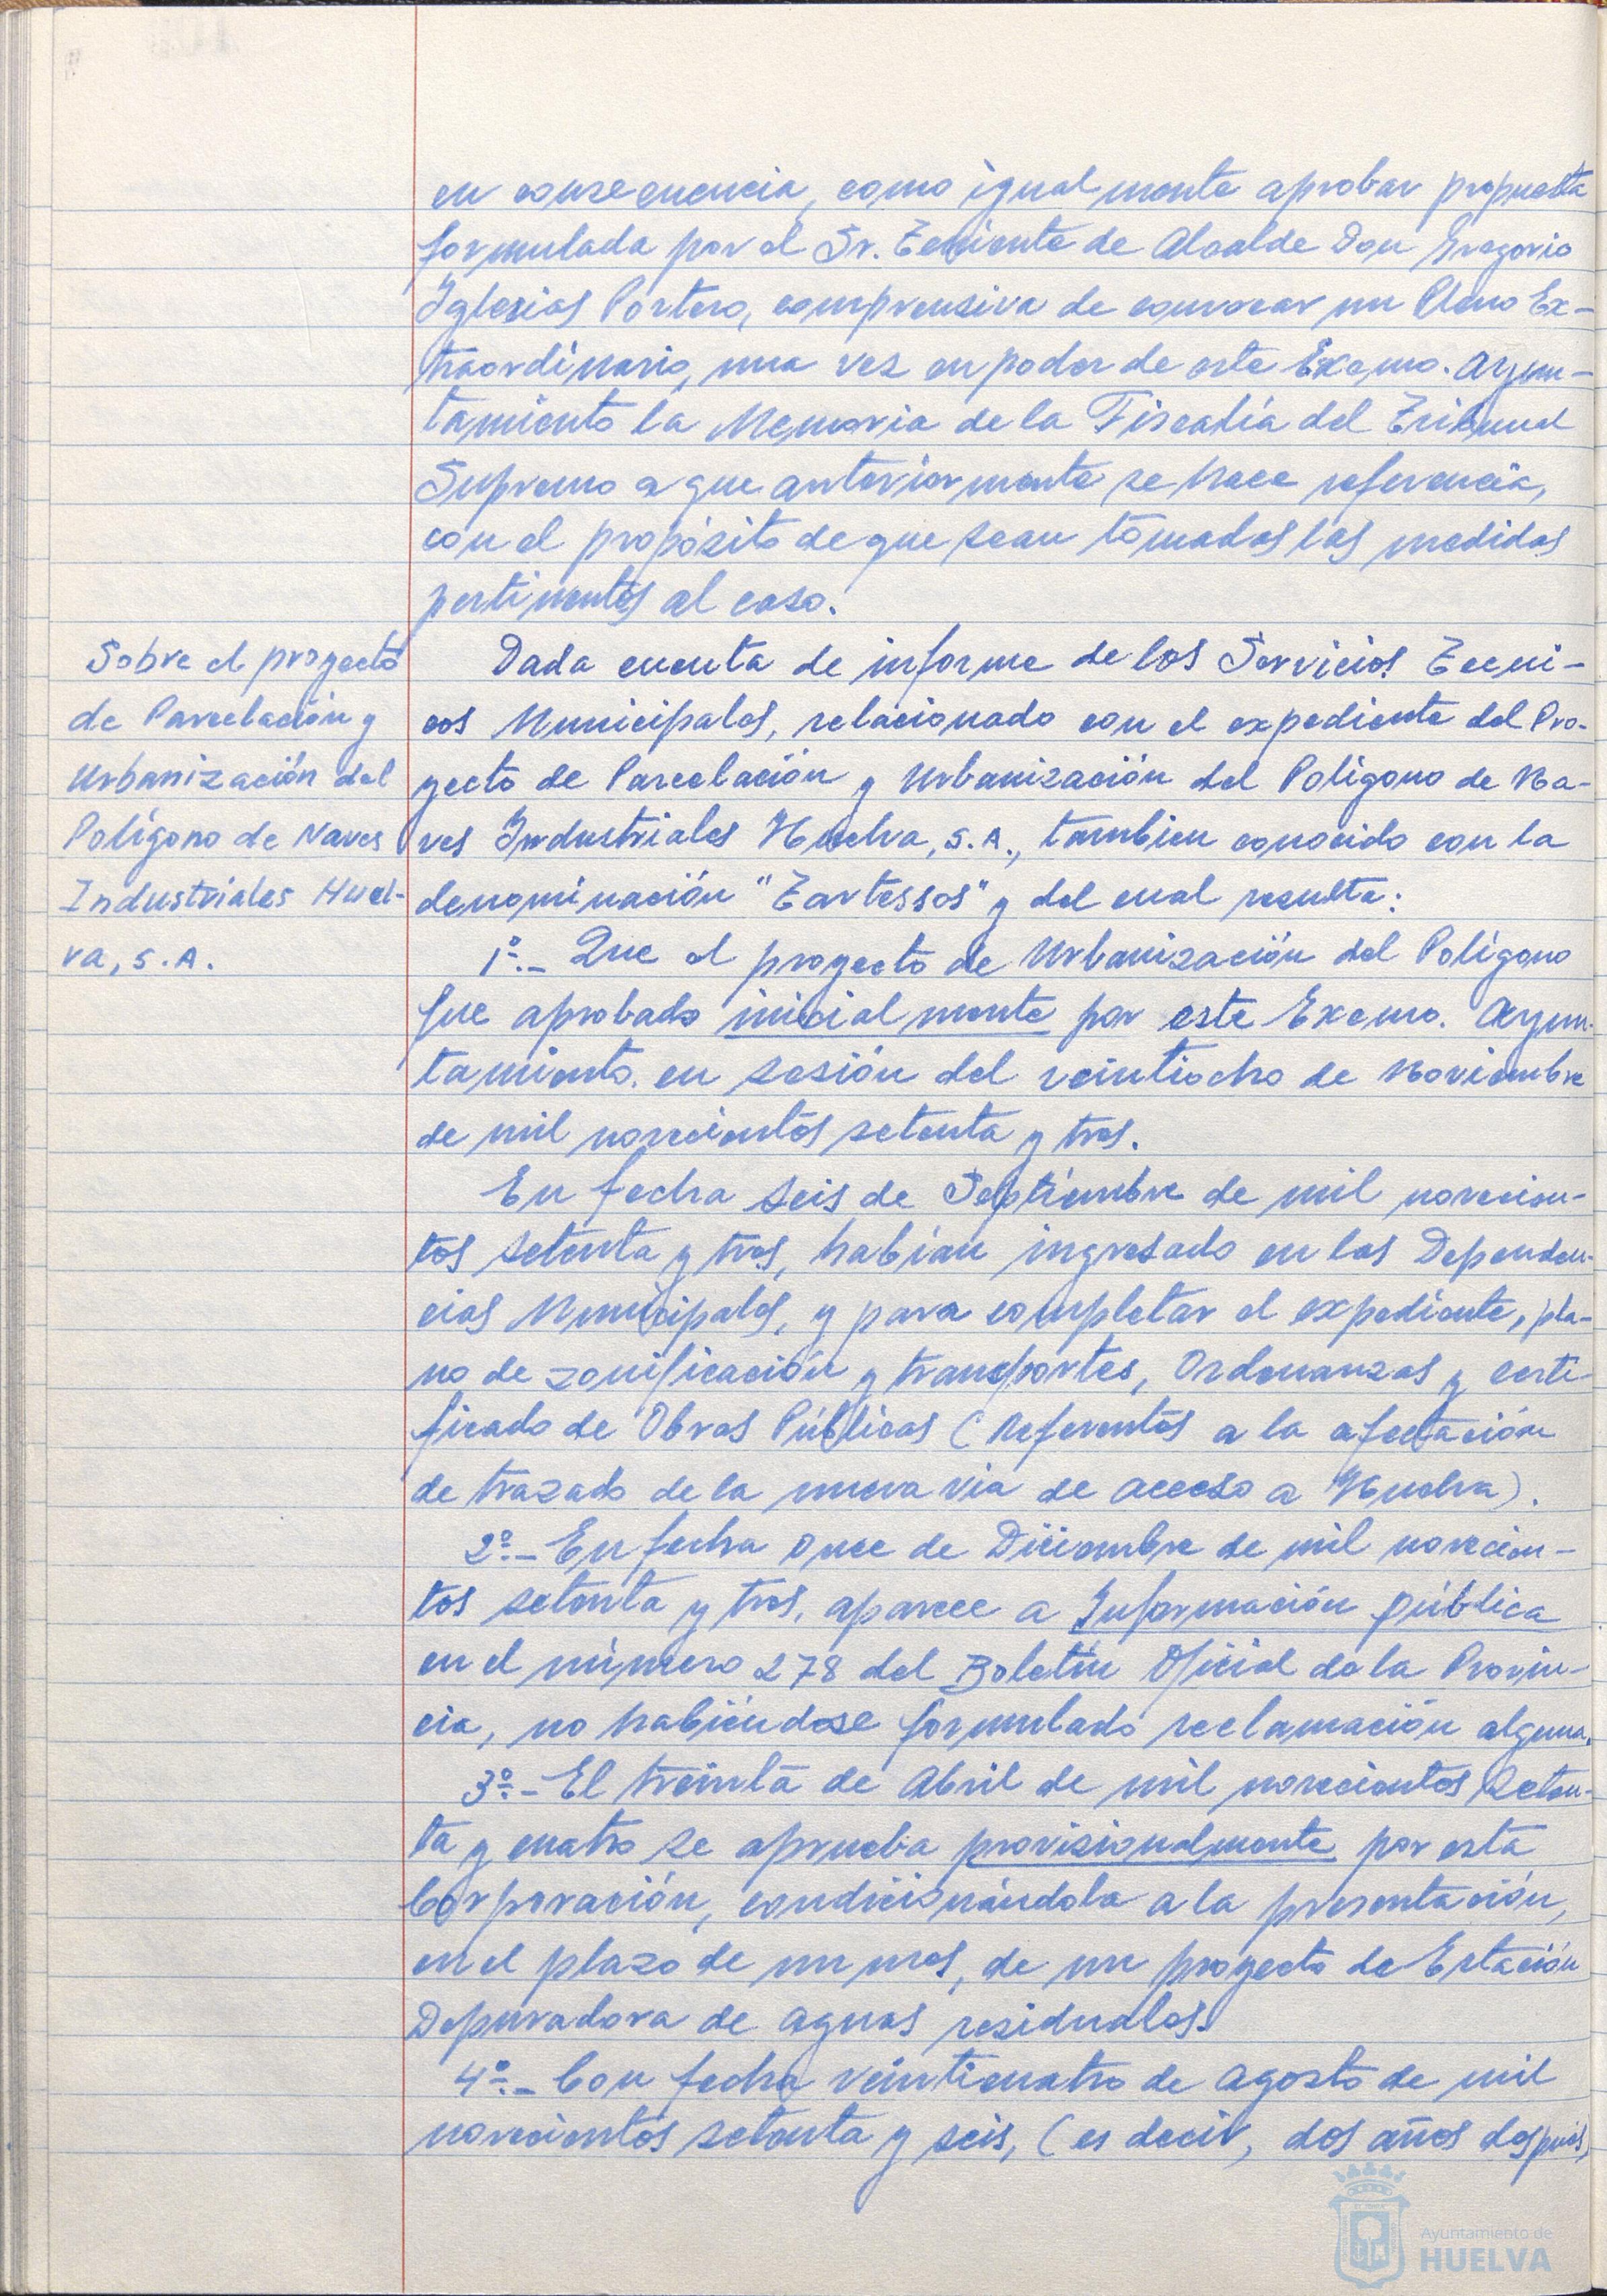 en consecuencia, como igualmente aprobar propuesta
formulada por el Sr. Teniente de Alcalde Don Gregorio
Iglesias Portero, comprensiva de convocar un Pleno Ex-
traordinario, una vez en poder de este Excmo. Ayun-
tamiento la Memoria de la Fiscalía del Tribunal
Supremo a que anteriormente se hace referencia,
con el propósito de que sean tomadas las medidas
pertinentes al caso.
Sobre el proyecto
de Parcelación y
Urbanización del
Polígono de Naves
Industriales Huel-
va, S.A.
Dada cuenta de informe de los Servicios Tecni-
cos Municipales, relacionado con el expediente del Pro-
yecto de Parcelación y Urbanización del Polígono de Na-
ves Industriales Huelva, S.A., tambien conocido con la
denominación "Tartessos" y del cual resulta:
1º.- Que el proyecto de Urbanización del Polígono
fue aprobado inicialmente por este Excmo. Ayun-
tamiento en sesión del veintiocho de Noviembre
de mil novecientos setenta y tres.
En fecha seis de Septiembre de mil novecien-
tos setenta y tres, habían ingresado en las Dependen-
cias Municipales, y para completar el expediente, pla-
no de zonificación y transportes, Ordenanzas y certi-
ficado de Obras Públicas (Referentes a la afectación
de trazado de la nueva via de acceso a Huelva).
2º.- En fecha once de Diciembre de mil novecien-
tos setenta y tres, aparece a Información pública
en el número 278 del Boletín Oficial de la Provin-
cia, no habiéndose formulado reclamación alguna.
3º.- El treinta de Abril de mil novecientos seten-
ta y cuatro se aprueba provisionalmente por esta
Corporación, condicionándola a la presentación,
en el plazo de un mes, de un proyecto de Estación
Depuradora de aguas residuales.
4º.- Con fecha veinticuatro de agosto de mil
novecientos setenta y seis, (es decir, dos años después,
Ayuntamiento de
HUELVA